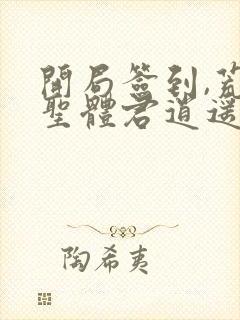 開局簽到,荒
聖體君逍遥
陶希夷